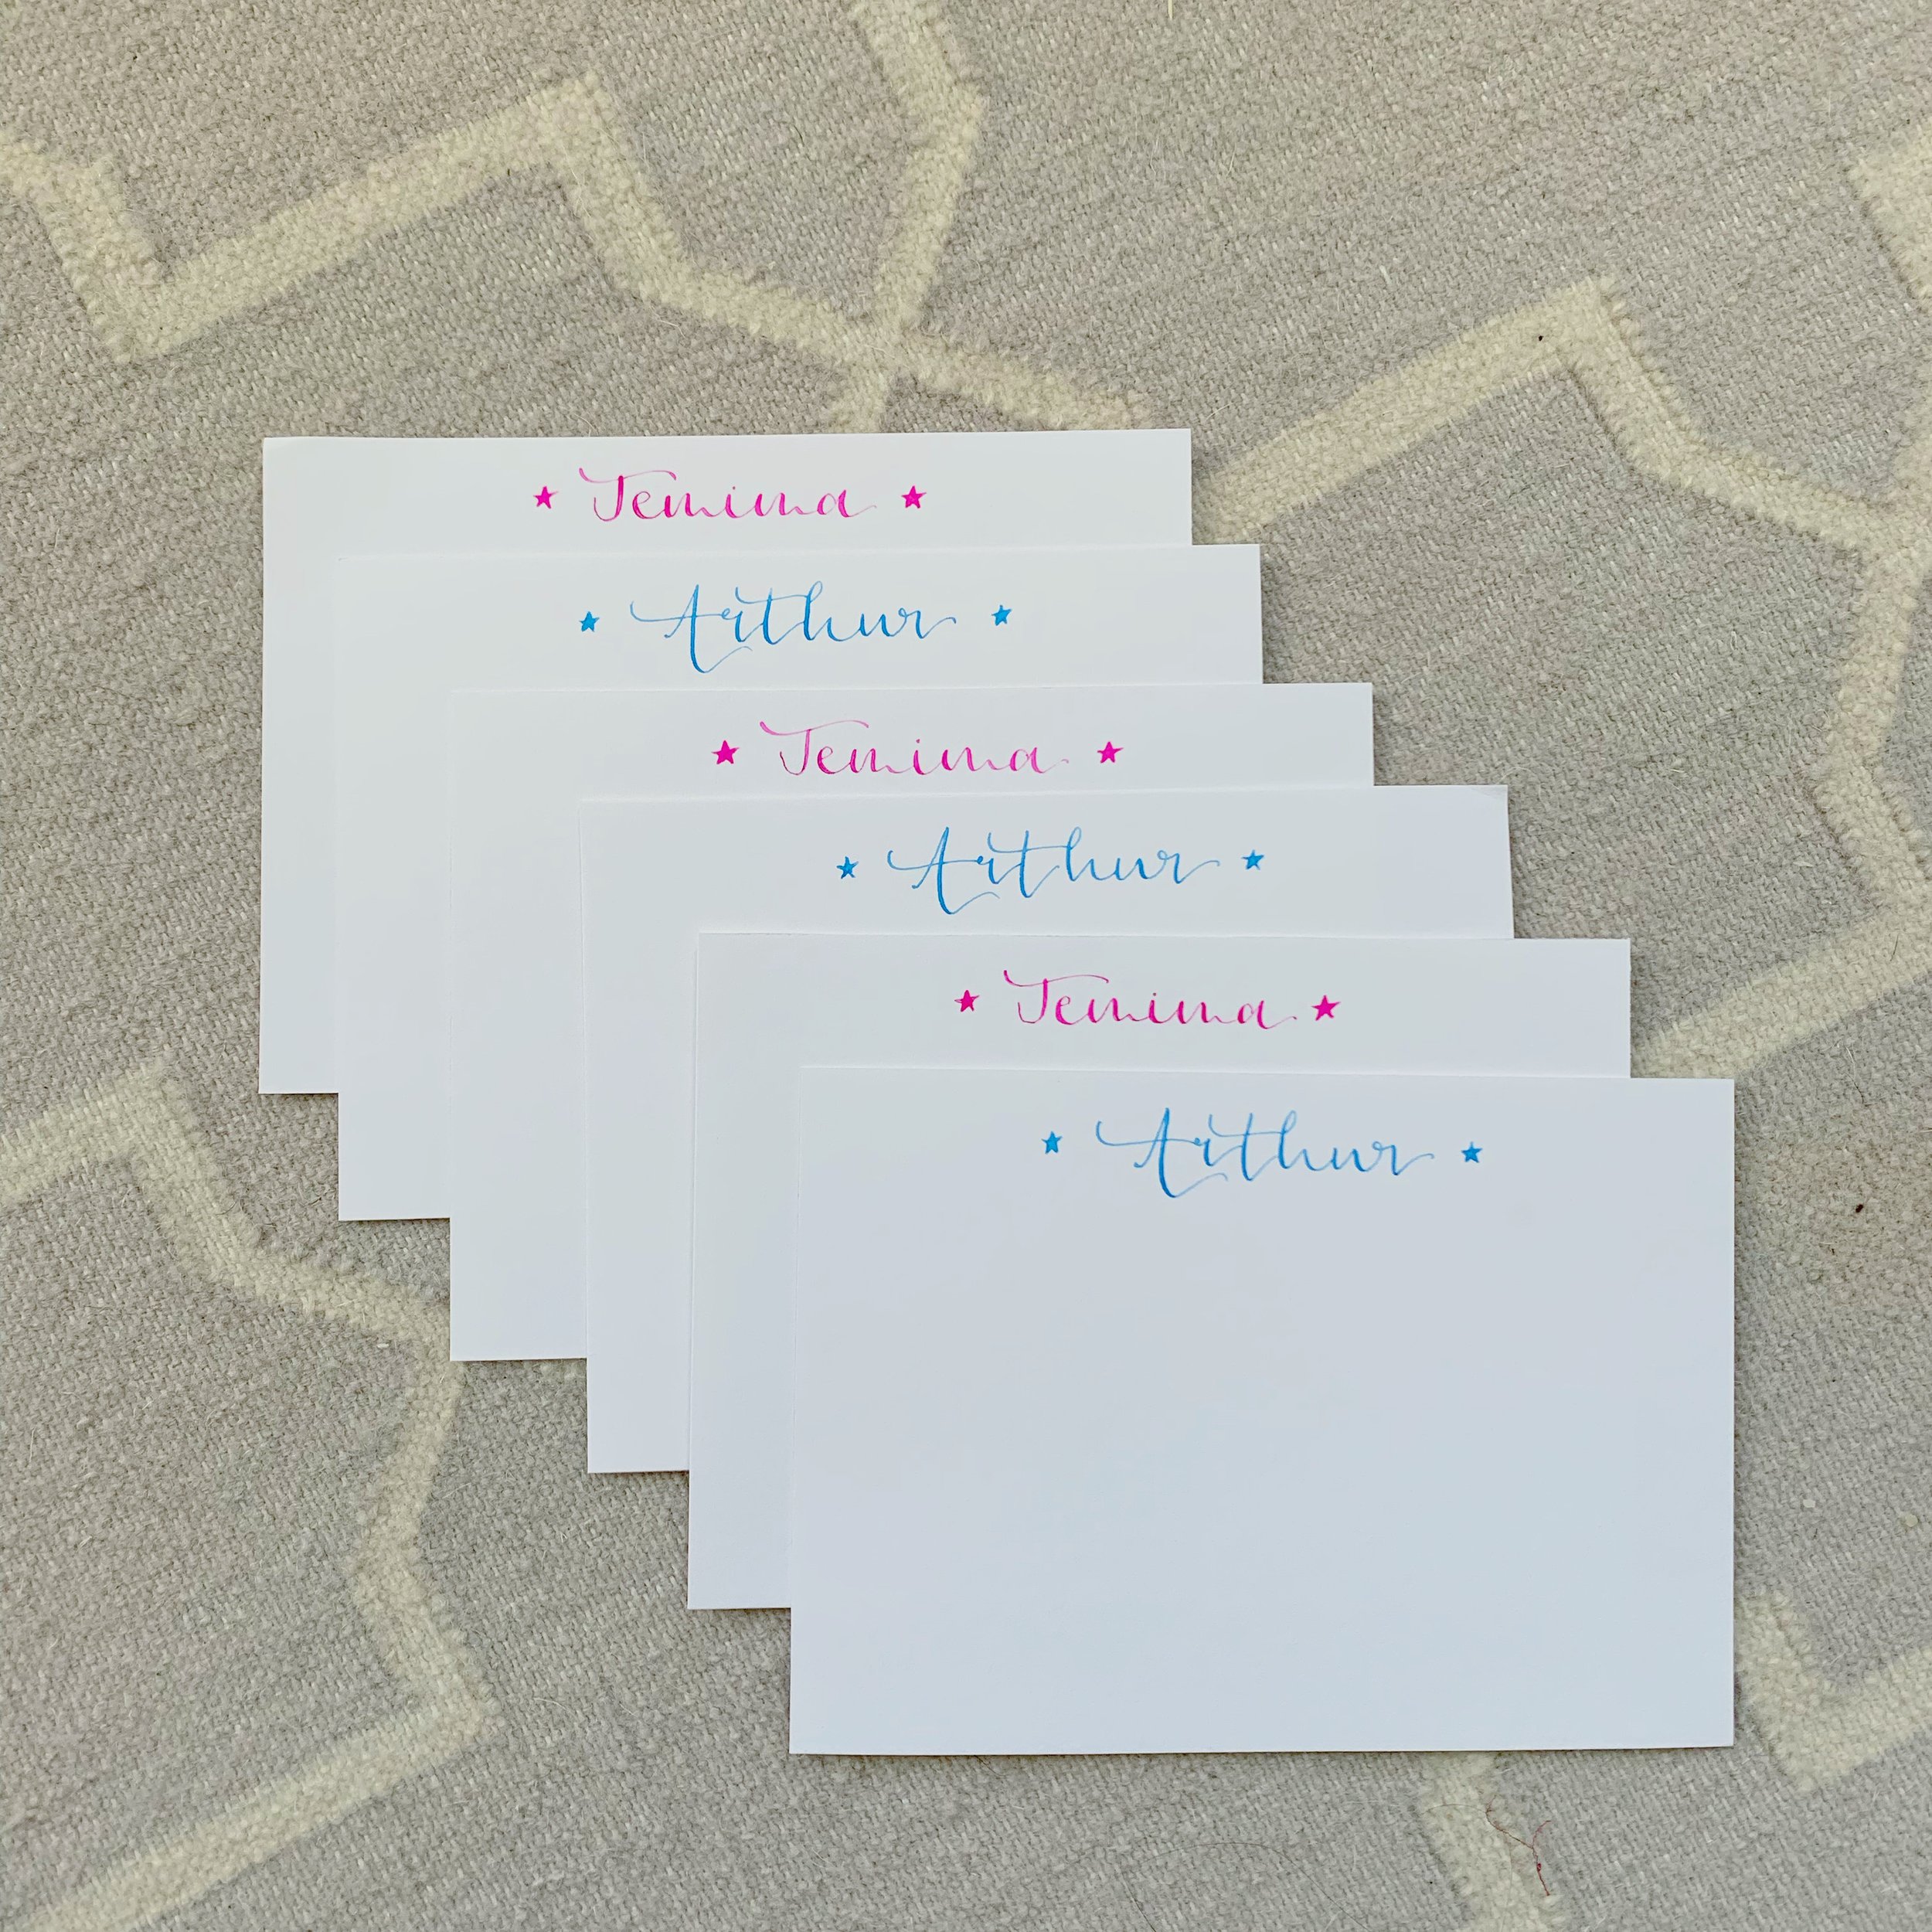 ★ Jemima ★
★ Arthur ★
★ Jemima ★
★ Arthur ★
★ Jemima ★
★ Arthur ★